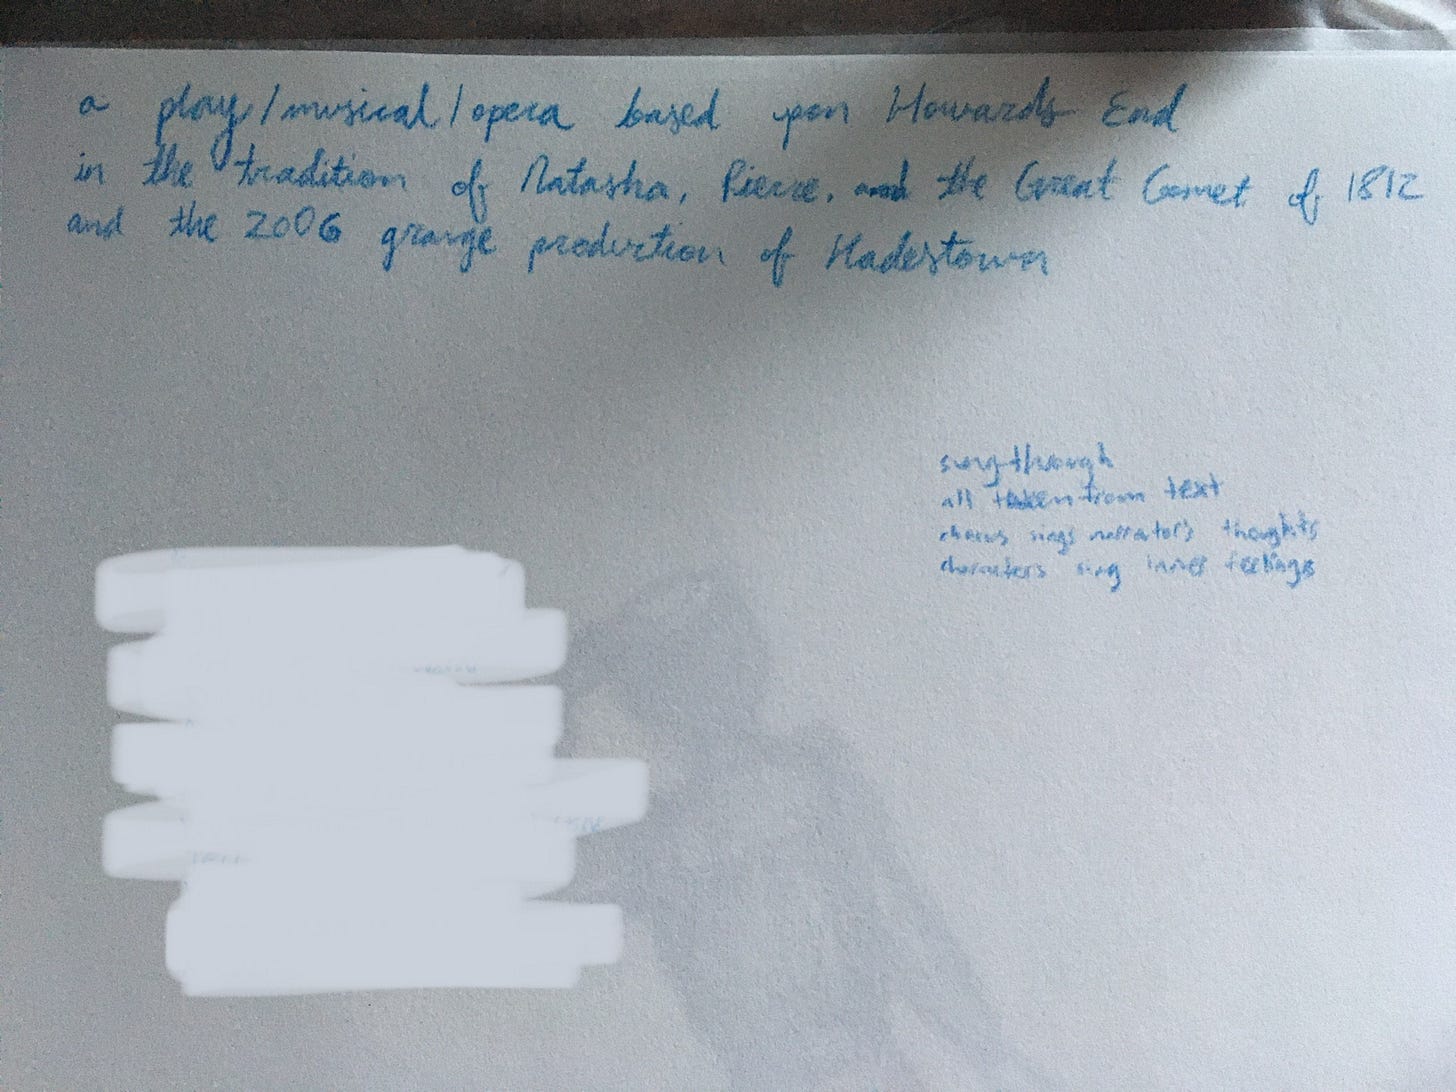 a play/musical/opera based upon Howards End
in the tradition of Natasha, Pierre, and the Great Comet of 1812
and the 2006 grange production of Hadestown
sung-through
all taken from text
chorus sings narrator's thoughts
characters sing inner feelings